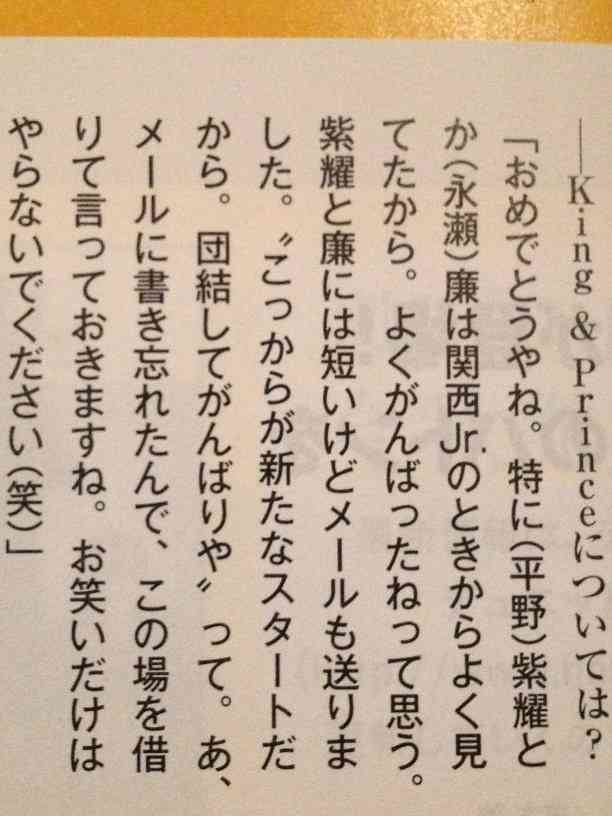 ──King & Princeについては?
「おめでとうやね。特に(平野)紫耀と
か(永瀬)廉は関西Jr.のときからよく見
てたから。よくがんばったねって思う。
紫耀と廉には短いけどメールも送りま
した。〝こっからが新たなスタートだ
から。団結してがんばりや〟って。あ、
メールに書き忘れたんで、この場を借
りて言っておきますね。お笑いだけは
やらないでください(笑)」